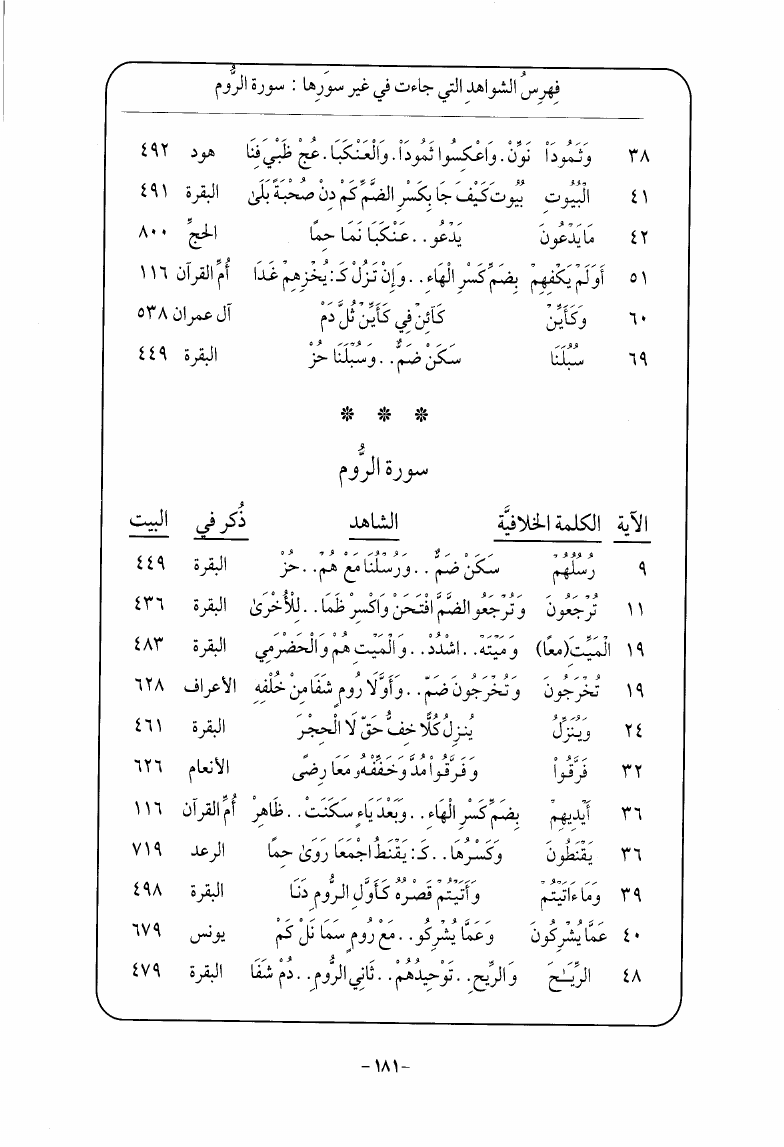 فهرس الشواهد التي جاءت في غير سورها : سورة الرُّوم
٣٨ وَثَمُودَاْ نَوِّنْ . وَاعْكِسُوا ثَمُوداً . وَالْعَنْكَبَا . عُجْ ظَبْيَ فِنَا هود ٤٩٢
٤١ الْبُيُوتِ بُيُوتَ كَيْفَ جَا بِكَسْرِ الضَّمِّ كَمْ دِنْ صُحْبَةً بَلَىٰ البقرة ٤٩١
٤٢ مَا يَدْعُونَ يَدْعُو . . عَنْكَبَا نَمَا حِمًا الحجّ ٨٠٠
٥١ أَوَلَمْ يَكْفِهِمْ بِضَمِّ كَسْرِ الْهَاءِ . . وَإِنْ تَزُلْ كَـ : يُخْزِهِمْ غَدَا أُم القرآن ١١٦
٦٠ وَكَأَيِّنْ كَائِنْ فِي كَأَيِّنْ ثُلَّ دُمْ آل عمران ٥٣٨
٦٩ سُبُلَنَا سَكِّنْ ضَمٌّ . . وَسُبْلَنَا حُزْ البقرة ٤٤٩
❊ ❊ ❊
سورة الرُّوم
الآية الكلمة الخلافيَّة الشاهد ذُكر في البيت
٩ رُسُلُهُم سَكِّنْ ضَمٌّ . . وَرُسْلُنَا مَعْ هُمْ . . حُزْ البقرة ٤٤٩
١١ تُرْجَعُونَ وَتُرْجَعُو الضَّمَّ افْتَحَنْ وَاكْسِرْ ظَمَا . . لِلْأُخْرَىٰ البقرة ٤٣٦
١٩ الْمَيِّتِ (معًا) وَمَيْتَهْ . . اشْدُدْ . . وَالْمَيْتِ هُمْ وَالْحَضْرَمِي البقرة ٤٨٣
١٩ تُخْرَجُونَ وَتُخْرَجُونَ ضَمّ . . وَأَوَّلَا رُومٍ شَفَا مِنْ خُلْفِهِ الأعراف ٦٢٨
٢٤ وَيُنَزِّلُ يُنْزِلُ كُلًّا خِفُّ حَقّ لَا الْحِجْرَ البقرة ٤٦١
٣٢ فَرَّقُواْ وَفَرَّقُواْ مُدَّ وَخَفِّفْهُ مَعَا رِضًى الأنعام ٦٢٦
٣٦ أَيْدِيهِمْ بِضَمِّ كَسْرِ الْهَاءِ . . وَبَعْدَ يَاءٍ سَكَنَتْ . . ظَاهِرْ أُم القرآن ١١٦
٣٦ يَقْنَطُونَ وَكَسْرُهَا . . كَـ : يَقْنَطُ اجْمَعَا رَوَىٰ حِمًا الرعد ٧١٩
٣٩ وَمَا ءَاتَيْتُم وَأَتَيْتُمُ قَصْرُهُ كَأَوَّلِ الرُّومِ دَنَا البقرة ٤٩٨
٤٠ عَمَّا يُشْرِكُونَ وَعَمَّا يُشْرِكُو . . مَعْ رُومٍ سَمَا نَلْ كَمْ يونس ٦٧٩
٤٨ الرِّيَـٰحَ وَالرِّيحِ . . تَوْحِيدُهُمْ . . ثَانِي الرُّومِ . . دُمْ شَفَا البقرة ٤٧٩
-١٨١-